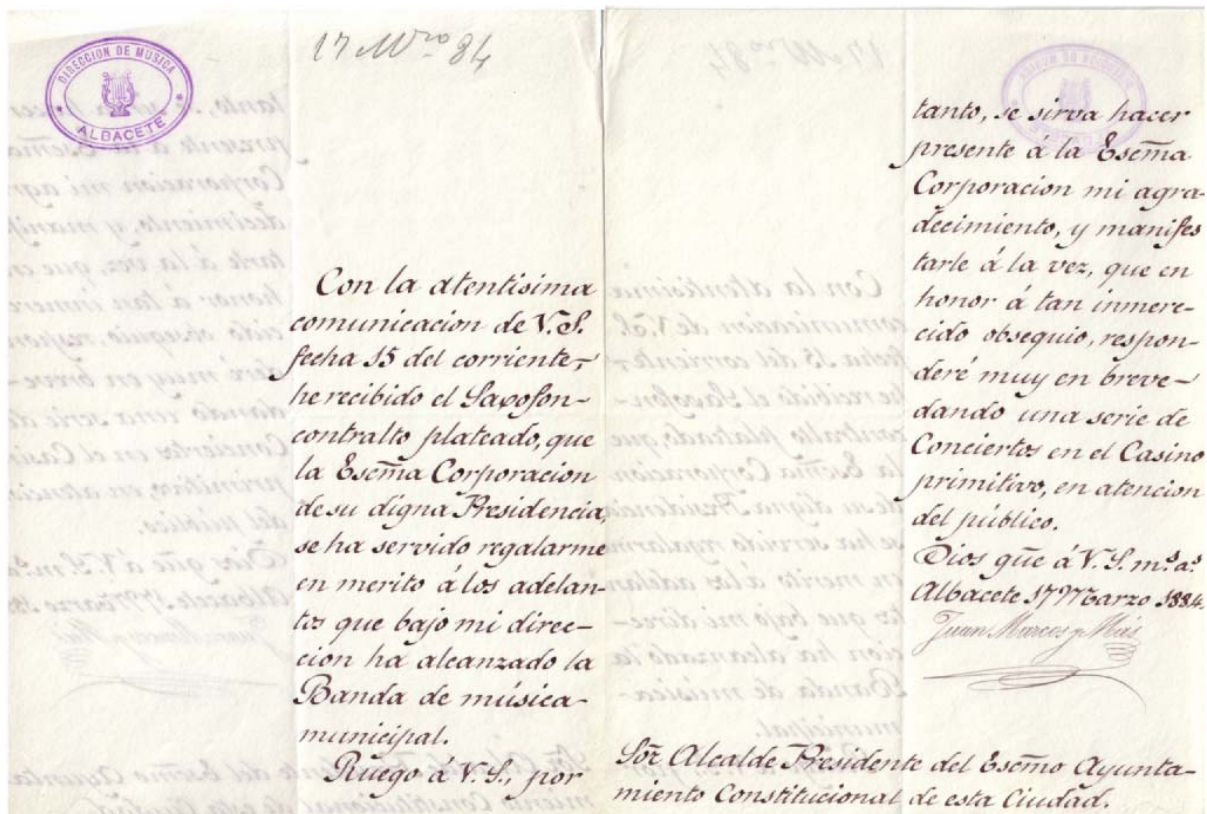 DIRECCION DE MUSICA
ALBACETE
17 Mzo 84
Con la atentísima
comunicacion de V. S.
fecha 15 del corriente,
he recibido el Saxofon-
contralto plateado, que
la Escma Corporacion
de su digna Presidencia,
se ha servido regalarme
en merito á los adelan-
tos que bajo mi direc-
cion ha alcanzado la
Banda de música
municipal.
Ruego á V. S., por
tanto, se sirva hacer
presente á la Escma
Corporacion mi agra-
decimiento, y manifes
tarle á la vez, que en
honor á tan inmere-
cido obsequio, respon-
deré muy en breve-
dando una serie de
Conciertos en el Casino
primitivo, en atencion
del público.
Dios gũe á V. S. m.s a.s
Albacete 17 Marzo 1884.
Juan Marcos y Más
Sor Alcalde Presidente del Escmo Ayunta-
miento Constitucional de esta Ciudad.